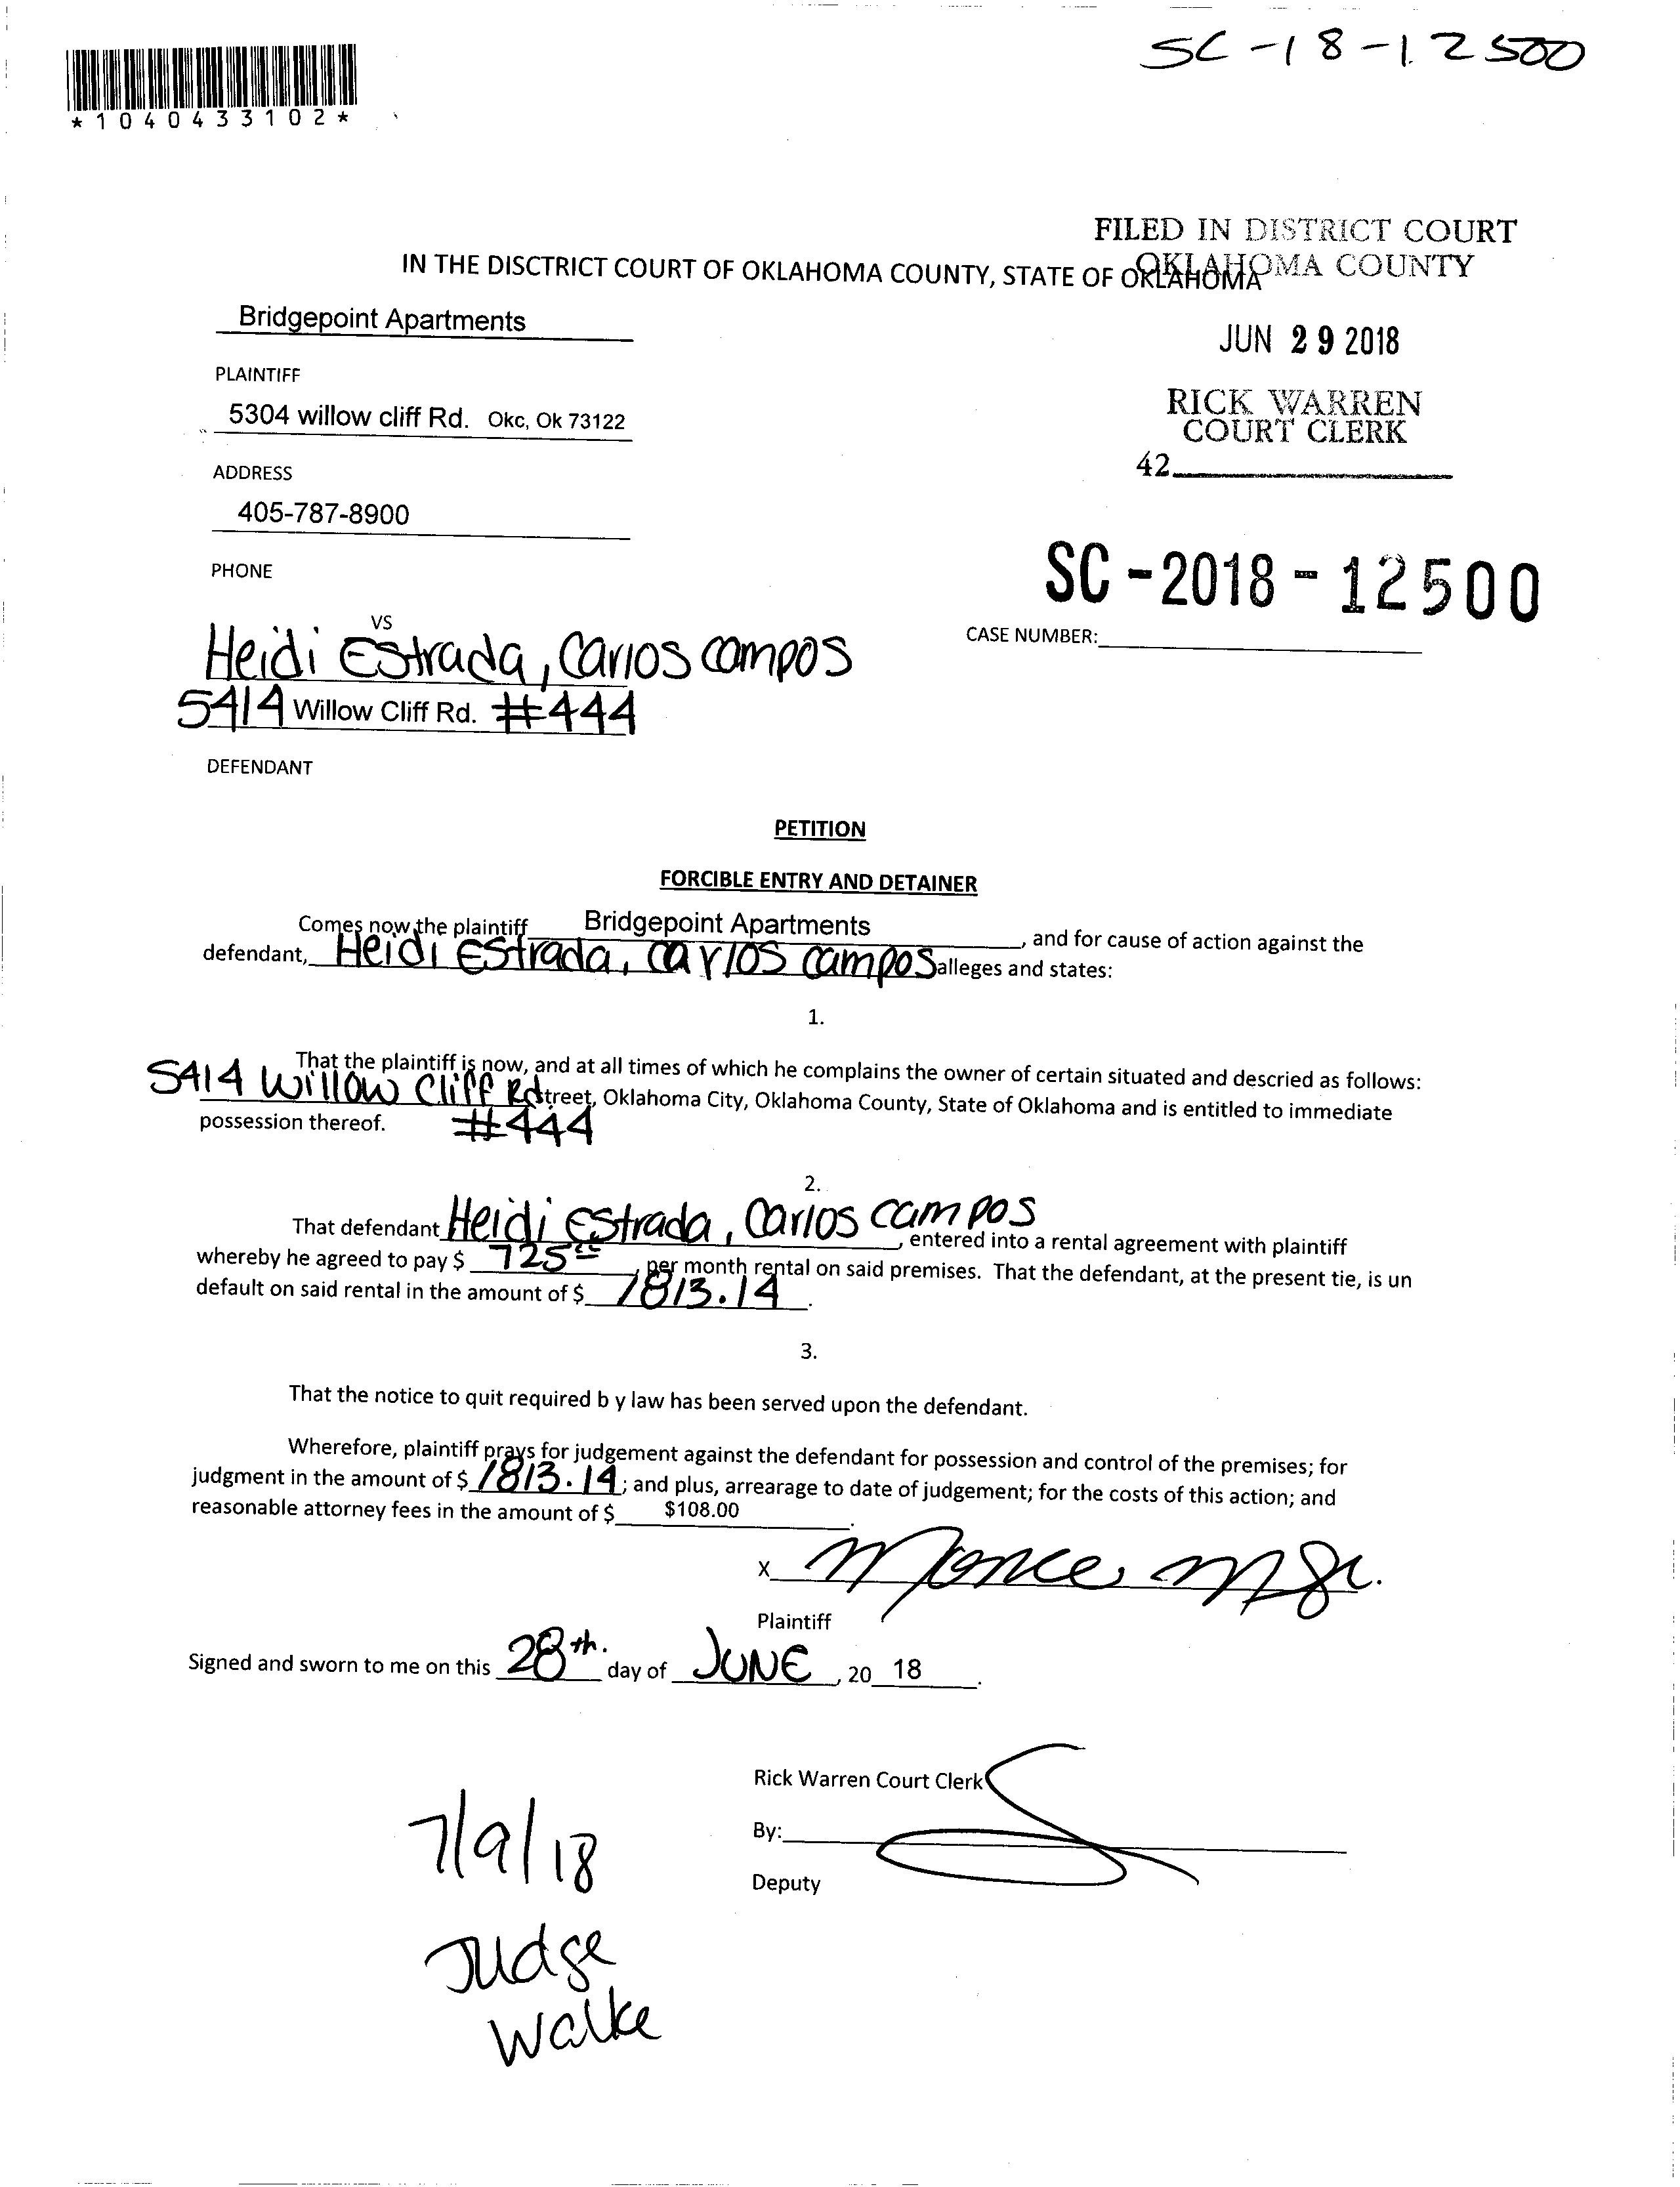 SC-18-12500
*1040433102*
FILED IN DISTRICT COURT
OKLAHOMA COUNTY
IN THE DISCTRICT COURT OF OKLAHOMA COUNTY, STATE OF OKLAHOMA
Bridgepoint Apartments
JUN 29 2018
PLAINTIFF
RICK WARREN
COURT CLERK
5304 willow cliff Rd. Okc, Ok 73122
42
ADDRESS
405-787-8900
PHONE
SC-2018-12500
CASE NUMBER:
VS
Heidi Estrada, Carlos campos
5414 Willow Cliff Rd. #444
DEFENDANT
PETITION
FORCIBLE ENTRY AND DETAINER
Comes now the plaintiff Bridgepoint Apartments, and for cause of action against the
defendant, Heidi Estrada, Carlos campos alleges and states:
1.
That the plaintiff is now, and at all times of which he complains the owner of certain situated and descried as follows:
5414 Willow Cliff Rd Street, Oklahoma City, Oklahoma County, State of Oklahoma and is entitled to immediate
possession thereof. #444
2.
That defendant Heidi Estrada, Carlos campos, entered into a rental agreement with plaintiff
whereby he agreed to pay $ 725, per month rental on said premises. That the defendant, at the present tie, is un
default on said rental in the amount of $ 1813.14.
3.
That the notice to quit required b y law has been served upon the defendant.
Wherefore, plaintiff prays for judgement against the defendant for possession and control of the premises; for
judgment in the amount of $ 1813.14; and plus, arrearage to date of judgement; for the costs of this action; and
reasonable attorney fees in the amount of $ $108.00.
X Mgr.
Plaintiff
Signed and sworn to me on this 28th. day of JUNE, 20 18.
Rick Warren Court Clerk
By:
Deputy
7/9/18
Judge
Walke